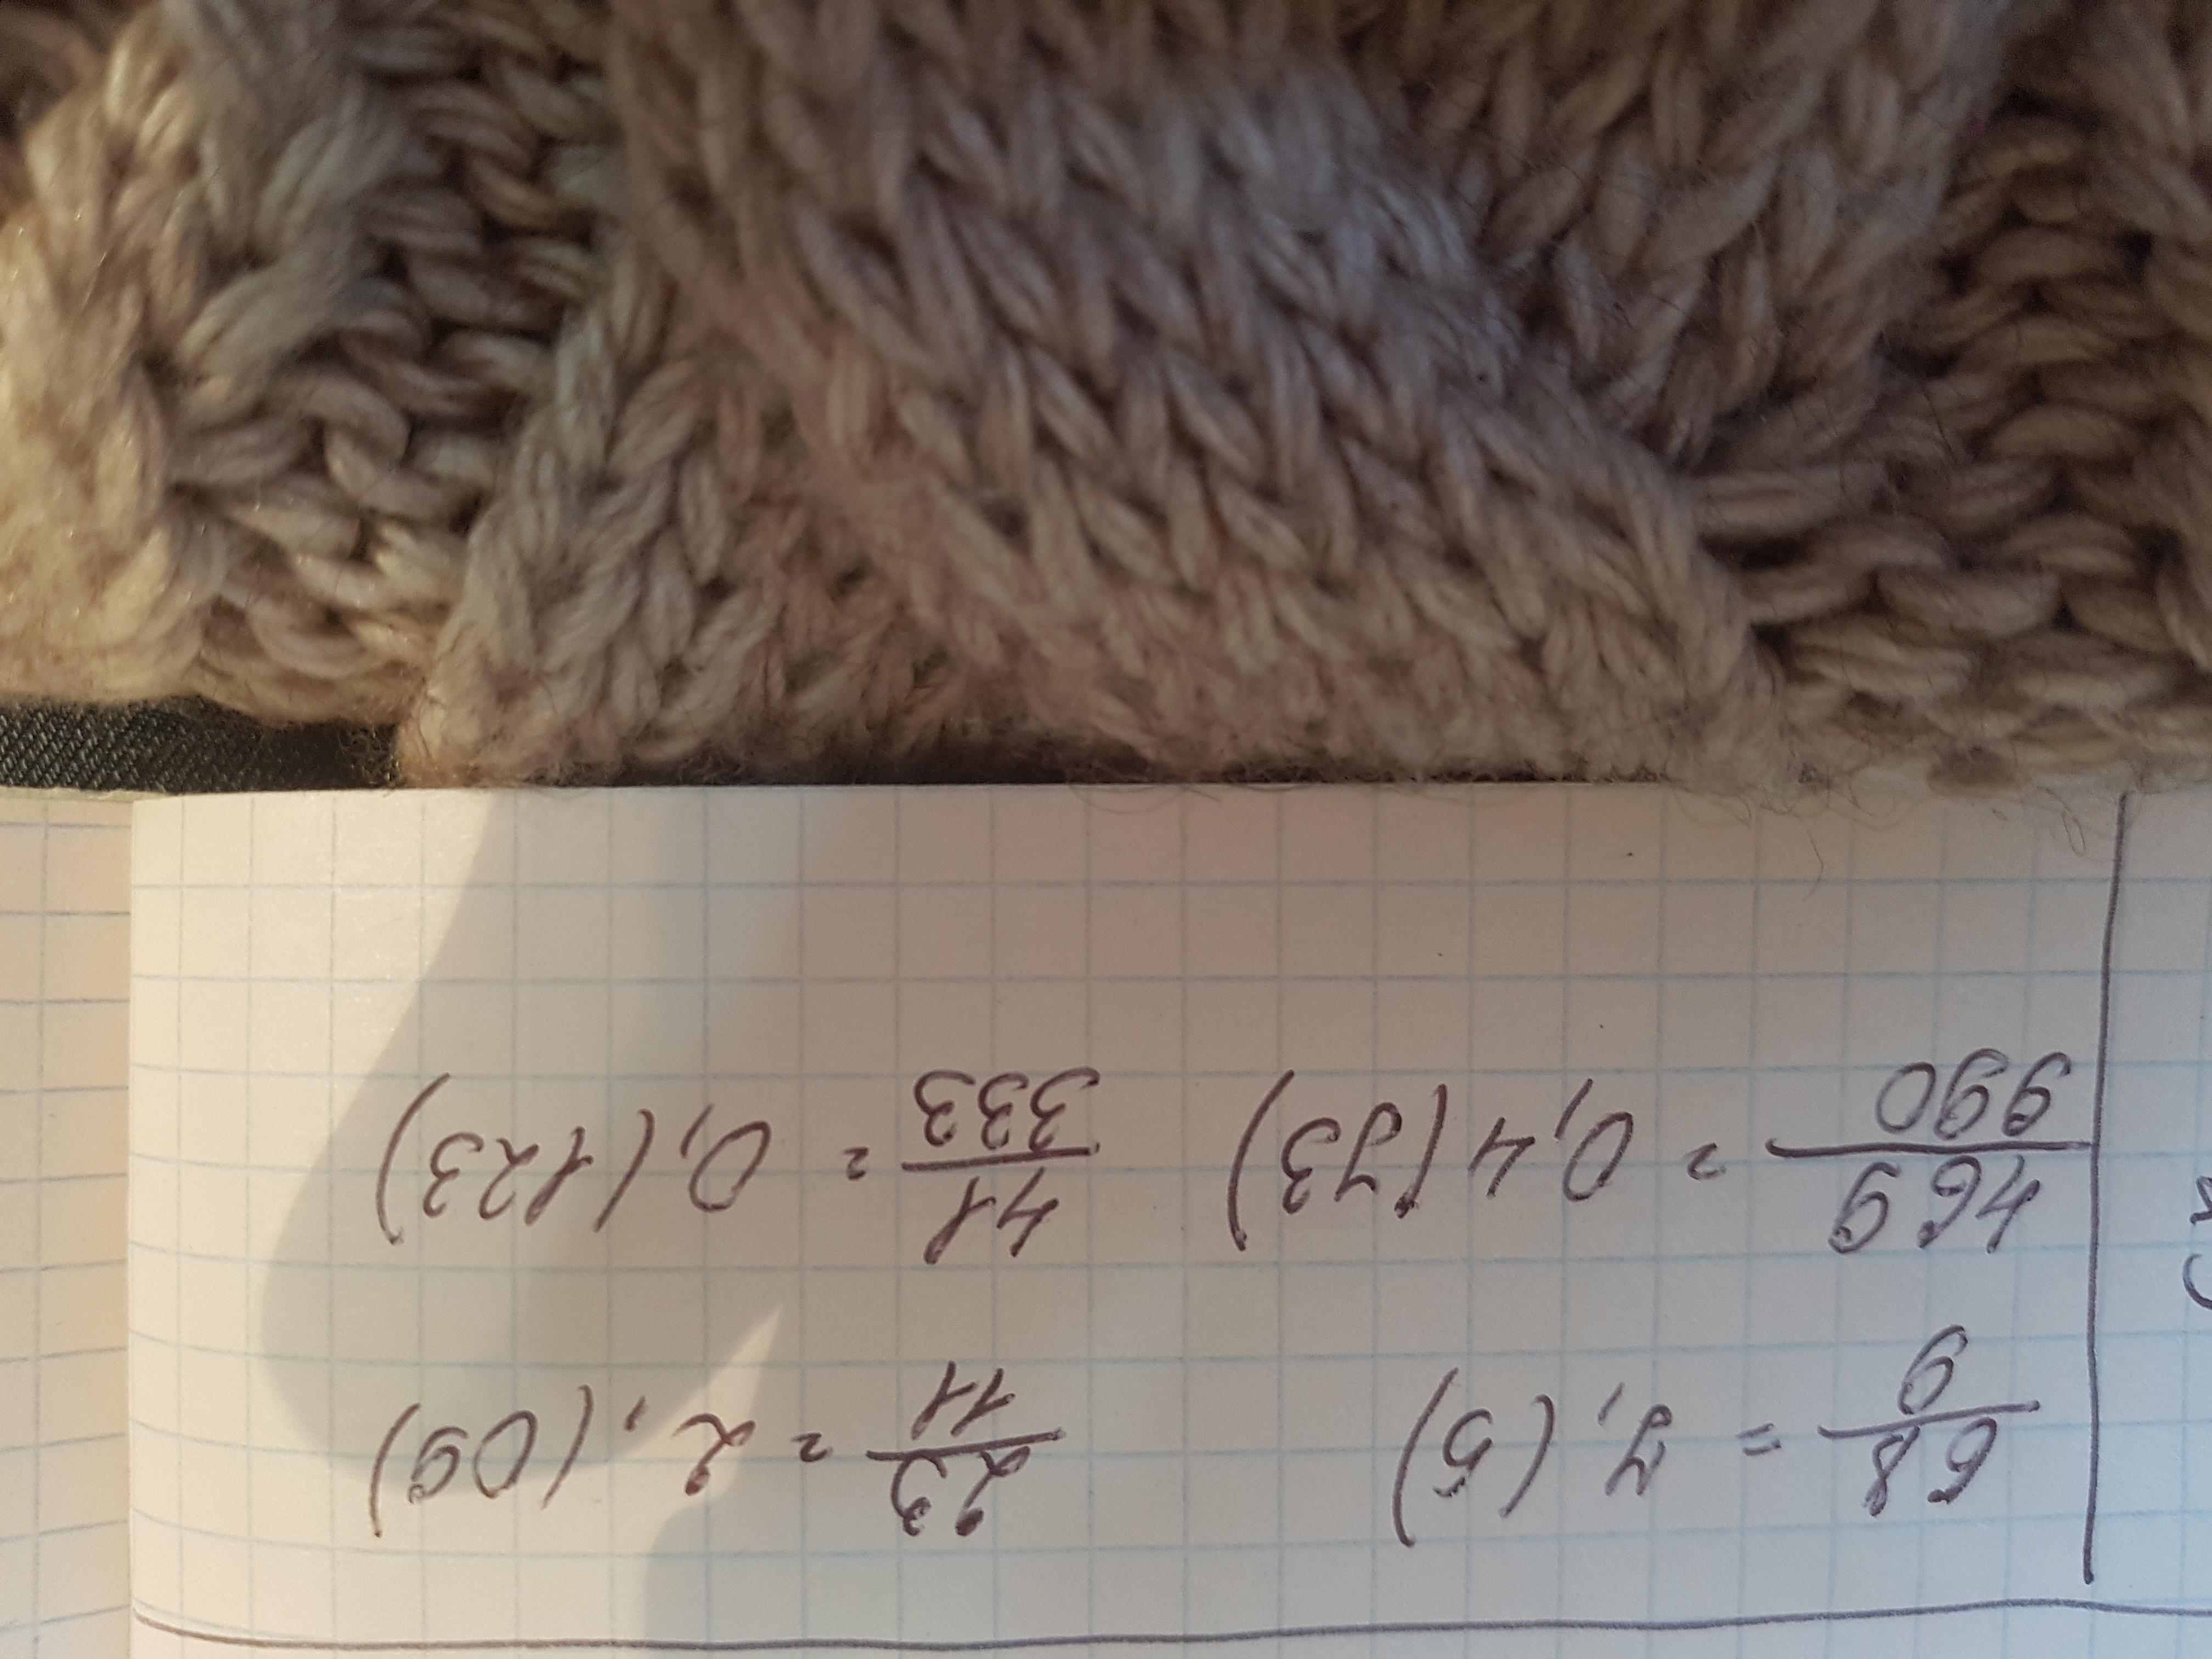 68/9 = 7,(5) 23/11 = 2,(09)
469/990 = 0,4(73) 41/333 = 0,(123)